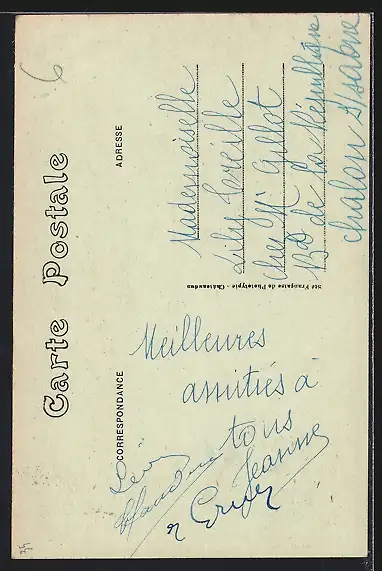 Carte Postale
CORRESPONDANCE
ADRESSE
6
Meilleures
amitiés à
tous
Jeanne
Mademoiselle
Lily
chez Mr Gillot
BD de la République
Chalon s/saône
Sté Française de Phototypie - Châteaudun